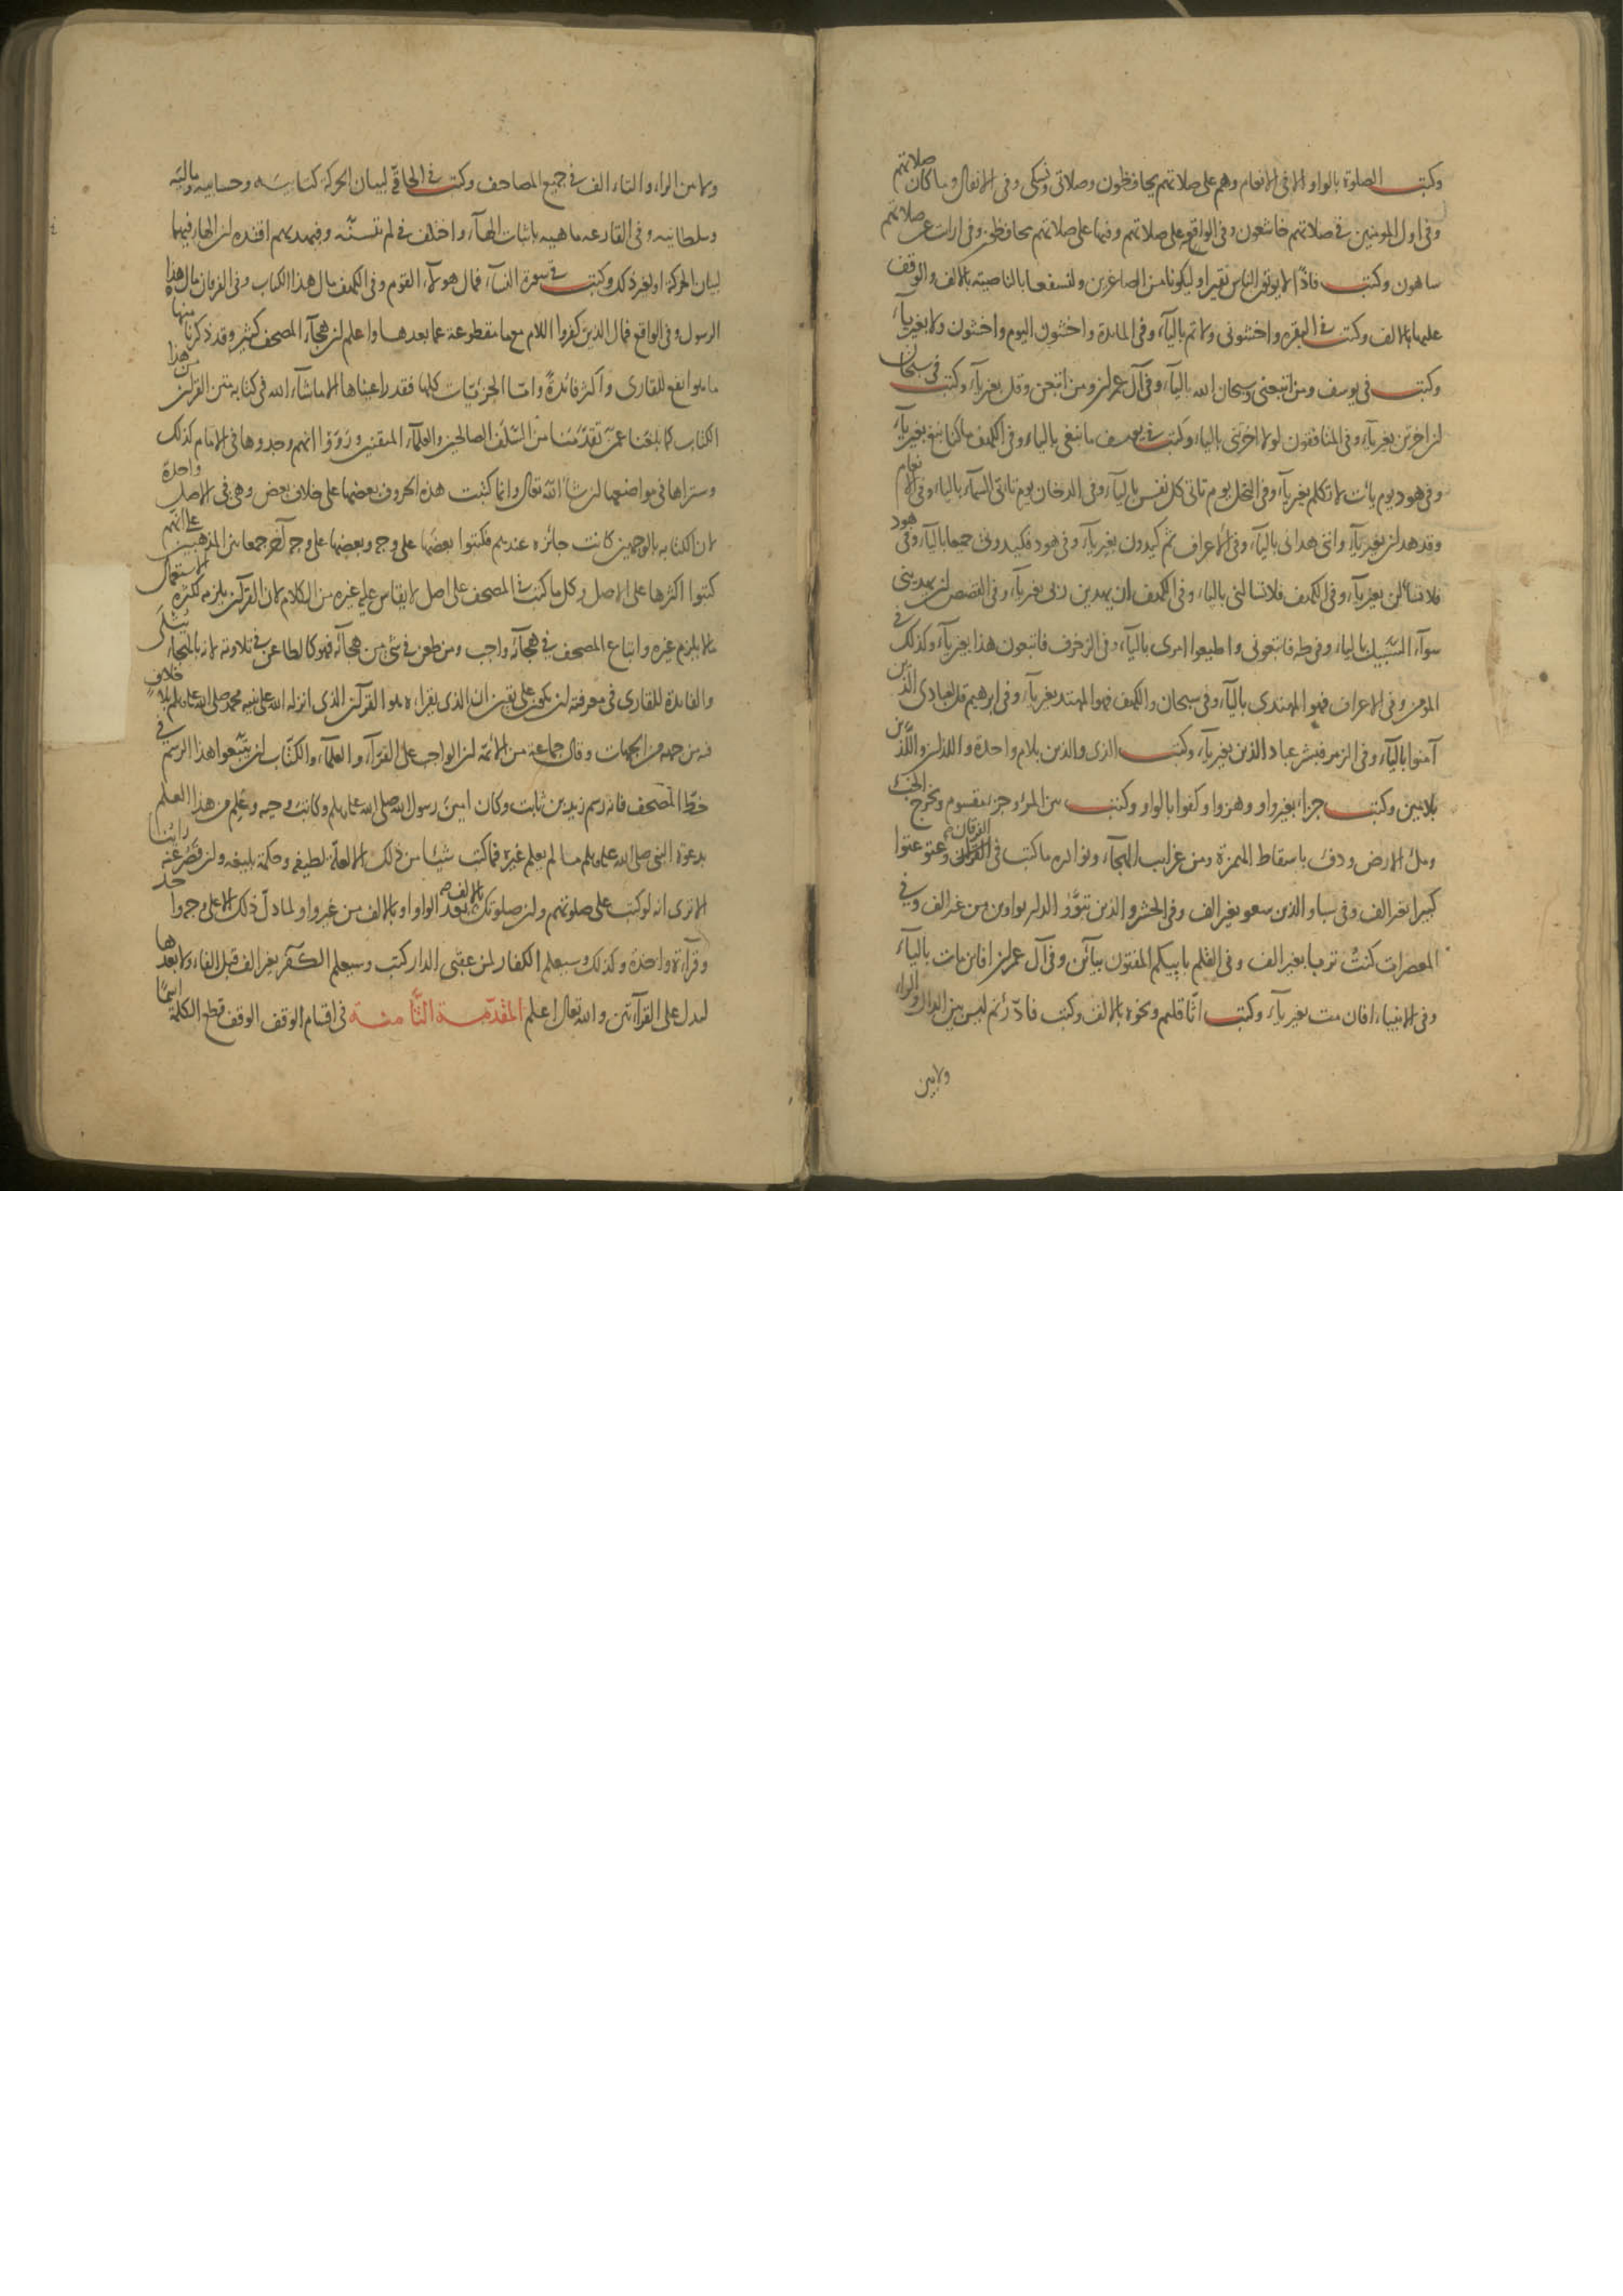 وكتبت الصلوة بالواو الا في الانعام وهم على صلاتهم يحافظون وصلاتي ونسكي وفي الانفال وما كان صلاتهم
وفي اول المومنين في صلاتهم خاشعون وفي الواقع على صلاتهم وفيها على صلاتهم يحافظون وفي ارايت عن صلاتهم
ساهون وكتبت فاذا لا يوتون الناس نقيرا وليكونا من الصاغرين ولنسفعا بالناصية بالالف والوقف
عليها بالالف وكتبت في البقره واخشوني ولاتم بالياء وفي المائدة واخشون اليوم واخشون ولا بغير ياء
وكتبت في يوسف ومن اتبعني وسبحان الله بالياء وفي آل عمران ومن اتبعن وقل بغير ياء وكتبت في سبحان
لئن اخرتن بغير ياء وفي المنافقون لولا اخرتني بالياء وكتبت في يوسف ما نبغي بالياء وفي الكهف ما كنا نبغ بغير ياء
وفي هود يوم يأت لا تكلم بغير ياء وفي النحل يوم تاتي كل نفس بالياء وفي الدخان يوم تاتي السماء بالياء وفي الانعام
وقد هدان بغير ياء وانني هداني بالياء وفي الاعراف ثم كيدون بغير ياء وفي هود فكيدوني جميعا بالياء وفي هود
فلا تسألن بغير ياء وفي الكهف فلا تسالني بالياء وفي الكهف ان يهدين ربي بغير ياء وفي القصص ان يهديني
سواء السبيل بالياء وفي طه فاتبعوني واطيعوا امري بالياء وفي الزخرف فاتبعون هذا بغير ياء وكذلك في
المومن وفي الاعراف فهو المهتدي بالياء وفي سبحان والكهف فهو المهتد بغير ياء وفي ابرهيم قل لعبادي الذين
آمنوا بالياء وفي الزمر فبشر عباد الذين بغير ياء وكتبت الذي والذين بلام واحدة واللذان واللذين
بلامين وكتبت جزا بغير واو وهزوا وكفوا بالواو وكتبت بين المرء وجزء مقسوم ويخرج الخبء
وملء الارض ودفء باسقاط الهمزة ومن غرايب الهجاء ونوادره ما كتب في الفرقان وعتو عتوا
كبيرا بغير الف وفي سبا والذين سعو بغير الف وفي الحشر والذين تبوؤ الدار بواوين من غير الف وفي
المعصرات كنت تربا بغير الف وفي القلم باييكم المفتون بيائين وفي آل عمران افاين مات بالياء
وفي الانبياء افان مت بغير ياء وكتبت اثاقلتم ونحوه بالالف وكتب فادارئتم ليس بين الدال والراء
ولا بين
ولا من الراء والتاء الف في جميع المصاحف وكتبت في الحاقة لبيان الحركة كتابيه وحسابيه وماليه
وسلطانيه وفي القارعه ما هيه باثبات الهاء واختلف في لم يتسنه وفبهديهم اقتده ان الهاء فيهما
لبيان الحركة او لغير ذلك وكتبت في سورة النساء فمال هولاء القوم وفي الكهف مال هذا الكتاب وفي الفرقان مال هذا
الرسول وفي الواقع فمال الذين كفروا اللام مع ما مقطوعة عما بعدها واعلم ان هجاء المصحف كثير وقد ذكرنا منها
ما هو انفع للقاري واكثر فائدة واما الجزئيات كلها فقد راعيناها الا ما شاء الله في كتابه متن القرآن من هذا
الكتاب كما بلغنا عمن تقدمنا من السلف الصالحين والعلماء المتقنين ورووا انهم وجدوها في الامام كذلك
وستراها في مواضعها ان شاء الله تعالى وانما كتبت هذه الحروف بعضها على خلاف بعض وهي في الاصل واحدة
لان الكتابه بالوجهين كانت جائزه عندهم فكتبوا بعضها على وجه وبعضها على وجه آخر جمعا بين المذهبين على انهم
كتبوا اكثرها على الاصل وكل ما كتب في المصحف على اصل لا يقاس عليه غيره من الكلام لان القرآن يلزمه لكثرة الاستعمال
ما لا يلزم غيره واتباع المصحف في هجائه واجب ومن طعن في شئ من هجائه فهو كالطاعن في تلاوته لانه بالهجاء يتلى
والفائدة للقاري في معرفته ان يكون على يقين ان الذي يقراه هو القرآن الذي انزله الله على نبيه محمد صلى الله عليه وسلم بلا خلاف
فيه من جهة من الجهات وقال جماعة من الائمة ان الواجب على القراء والعلماء والكتاب ان يتبعوا هذا الرسم في
خط المصحف فانه رسم زيد بن ثابت وكان امين رسول الله صلى الله عليه وسلم وكاتب وحيه وعلم من هذا العلم
بدعوة النبي صلى الله عليه وسلم ما لم يعلم غيره فما كتب شيئا من ذلك الا لعلة لطيفه وحكمة بليغه وان قصر عنه رأينا
الا ترى انه لو كتب على صلوتهم وان صلوتك بالالف بعد الواو او بالالف من غير واو لما دل ذلك الا على وجه واحد
وقرآءة واحدة وكذلك وسيعلم الكفار لمن عقبى الدار كتب وسيعلم الكفر بغير الف قبل الفاء ولا بعدها
ليدل على القرآءتين والله تعالى اعلم المقدمة الثامنة في اقسام الوقف الوقف قطع الكلمة